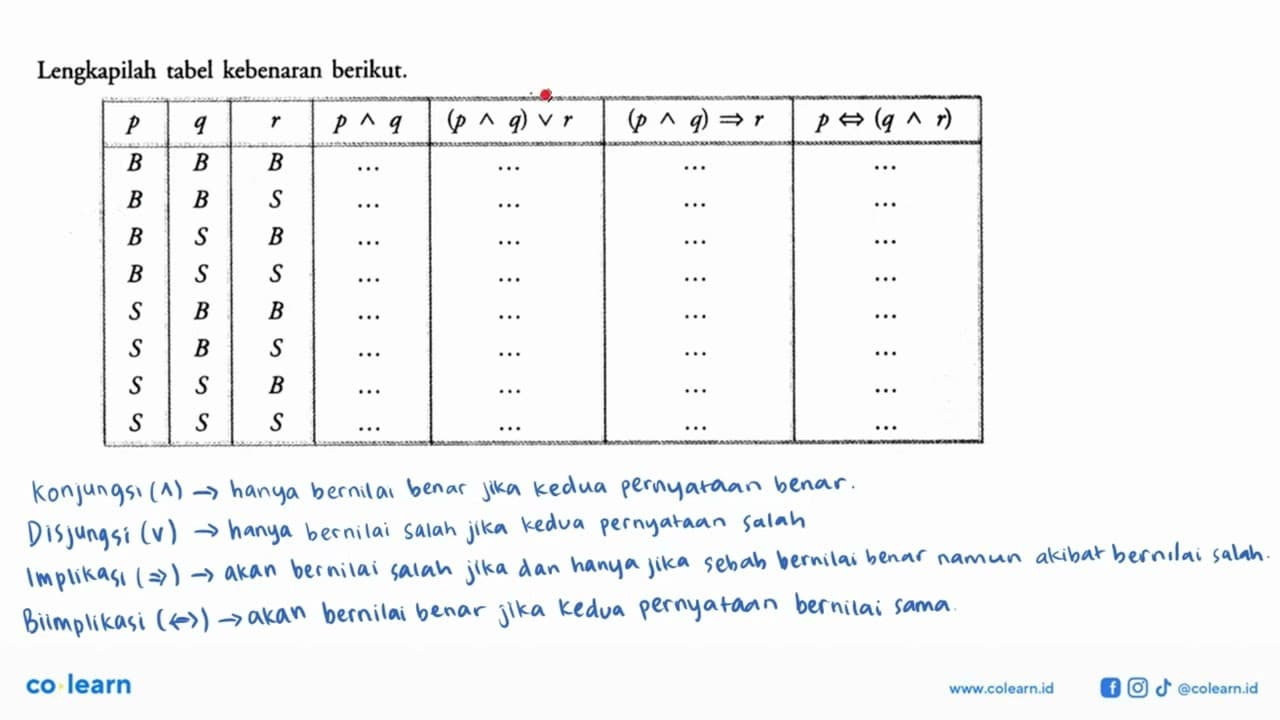 Lengkapilah tabel kebenaran berikut.
p q r p ∧ q (p ∧ q) ∨ r (p ∧ q) ⇒ r p ⇔ (q ∧ r)
B B B ... ... ... ...
B B S ... ... ... ...
B S B ... ... ... ...
B S S ... ... ... ...
S B B ... ... ... ...
S B S ... ... ... ...
S S B ... ... ... ...
S S S ... ... ... ...
Konjungsi (∧) → hanya bernilai benar jika kedua pernyataan benar.
Disjungsi (∨) → hanya bernilai salah jika kedua pernyataan salah
Implikasi (⇒) → akan bernilai salah jika dan hanya jika sebab bernilai benar namun akibat bernilai salah.
Biimplikasi (⇔) → akan bernilai benar jika kedua pernyataan bernilai sama.
co learn
www.colearn.id @colearn.id